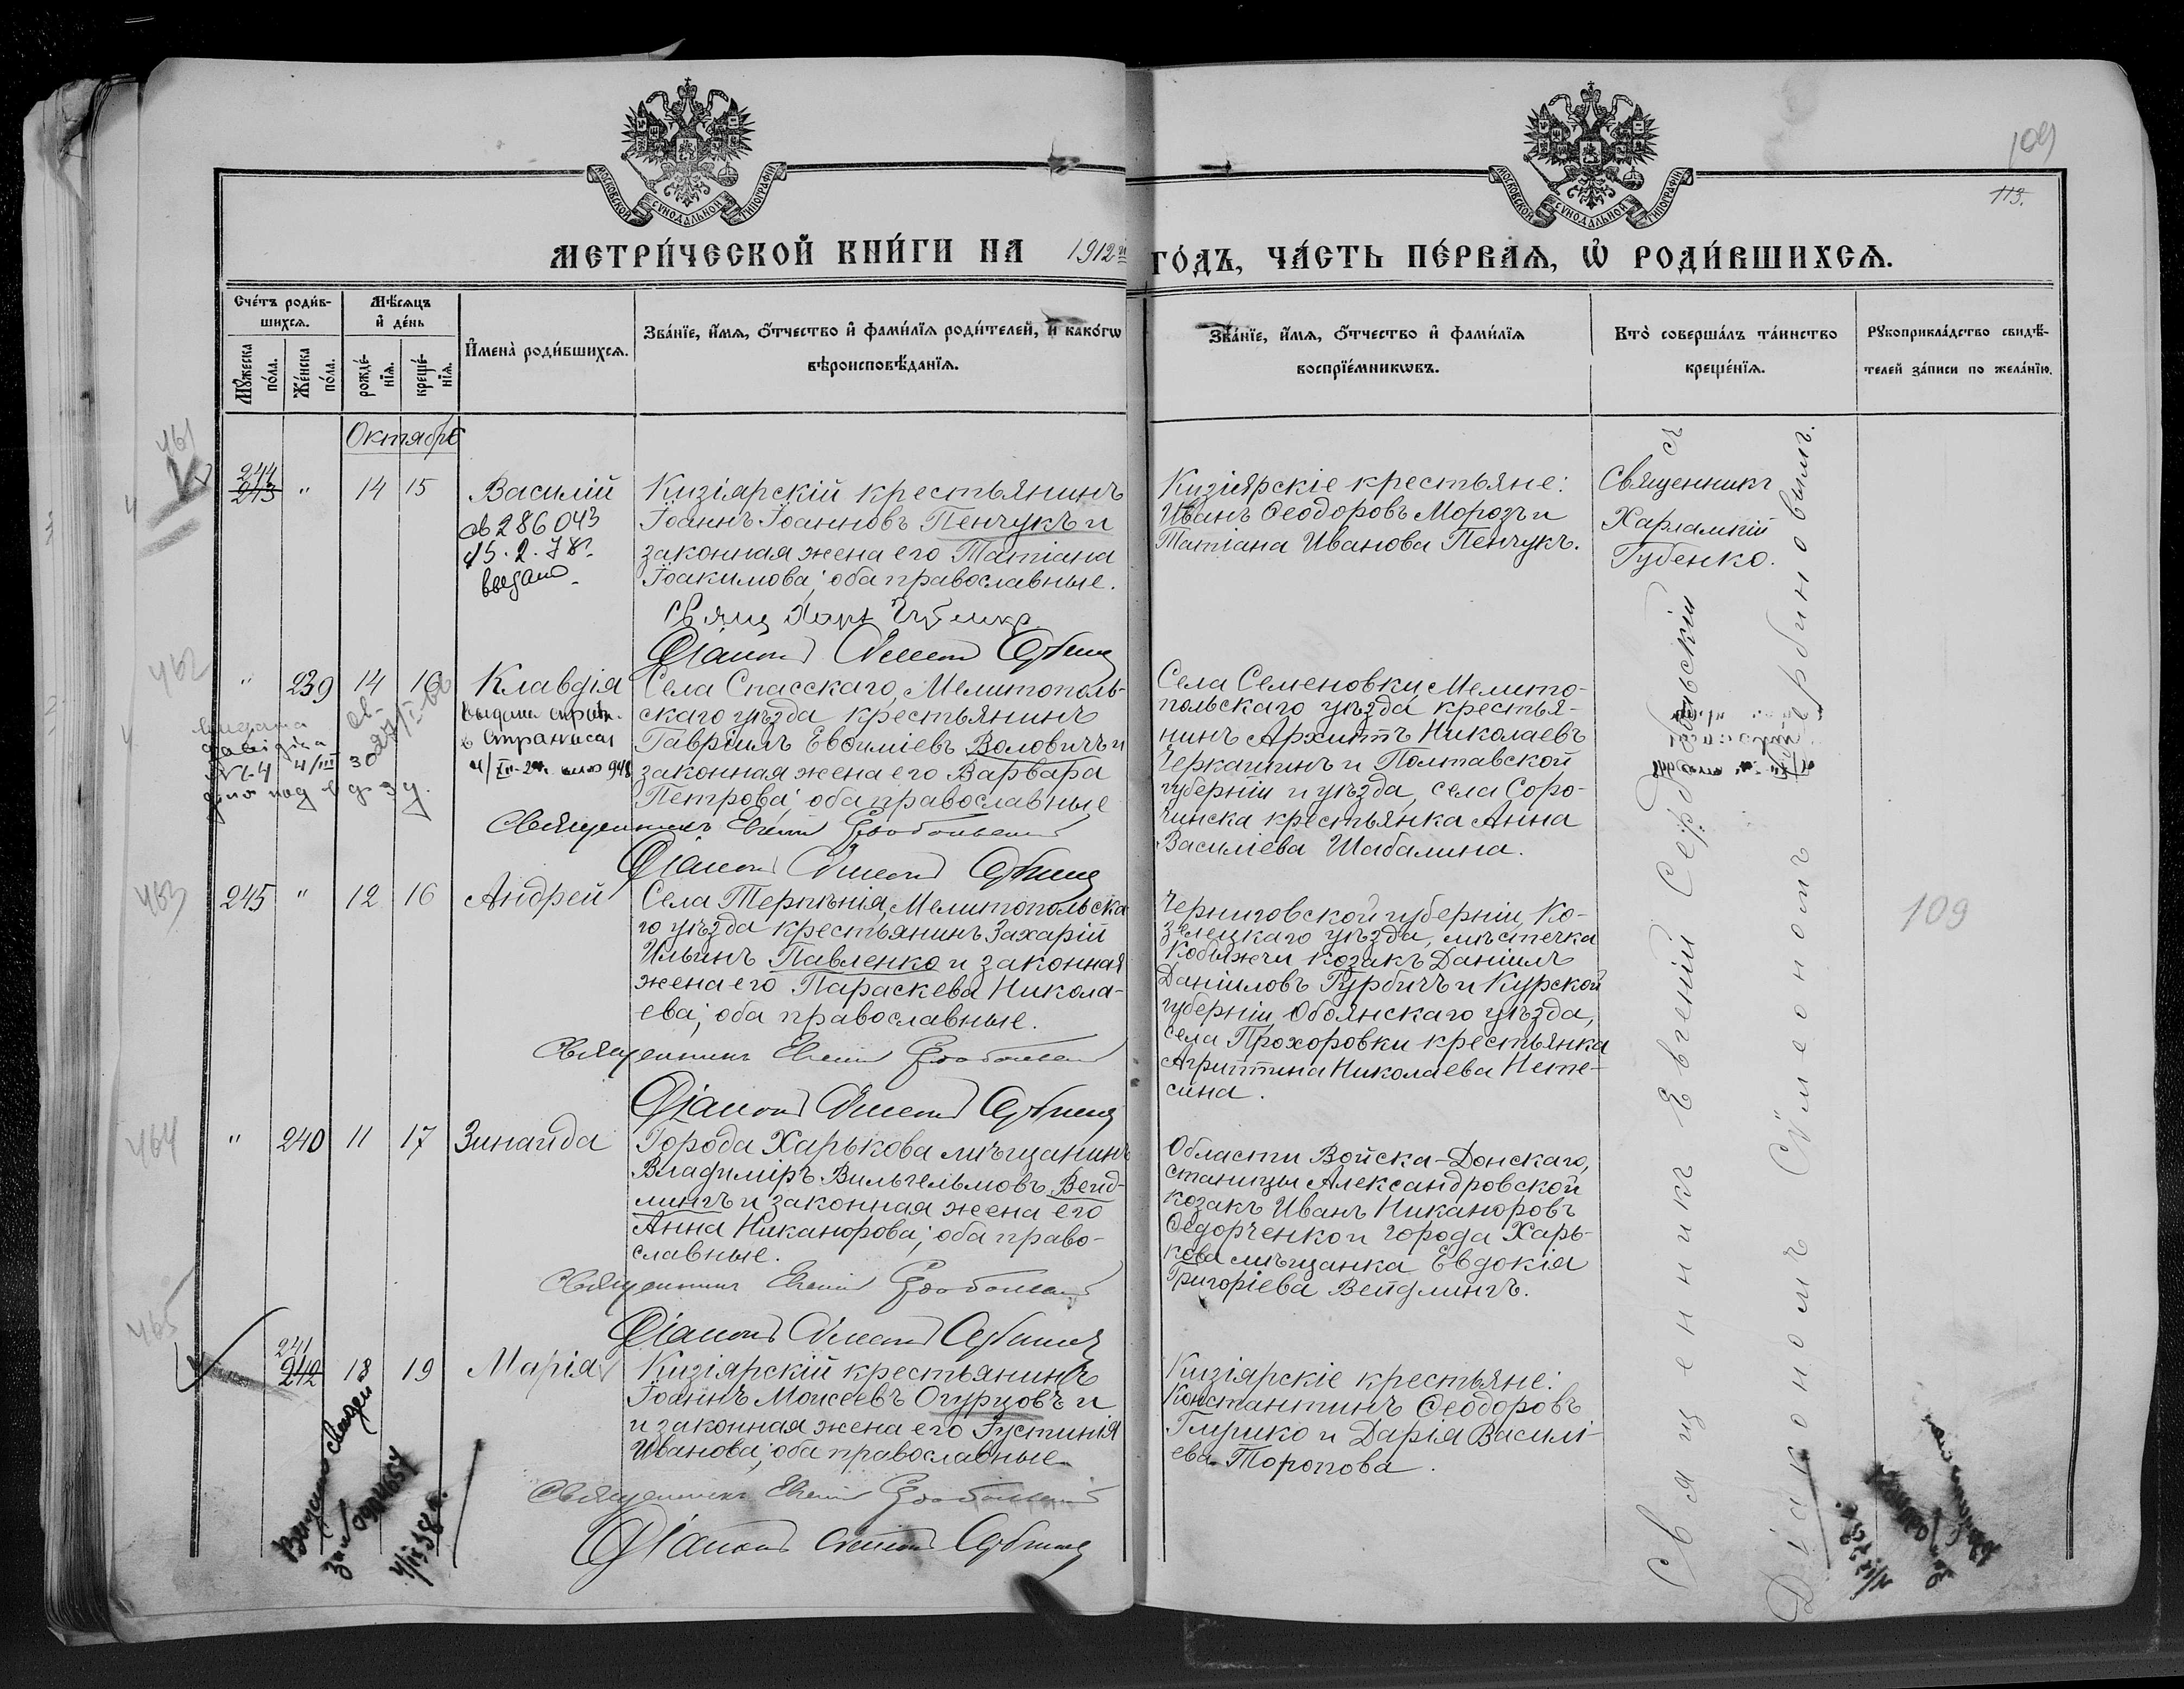 109
113.
МОСКОВСКОЙ СѴНОДАЛЬНОЙ ТИПОГРАФІИ
МОСКОВСКОЙ СѴНОДАЛЬНОЙ ТИПОГРАФІИ
МЕТРИ́ЧЕСКОЙ КНИ́ГИ НА 1912й ГО́ДЪ, ЧА́СТЬ ПЕ́РВАЯ, Ѡ҆ РОДИ́ВШИХСЯ.
Сче́тъ роди́в-
шихся.
Мꙋ́жеска
по́ла.
Же́нска
по́ла.
Мѣ́сяцъ
и҆ де́нь
рожде́-
нїя.
креще́-
нїя.
И҆мена̀ роди́вшихся.
Зва́нїе, и҆́мя, о҆́тчество и҆ фами́лїя роди́телей, и҆ како́гѡ
вѣроисповѣ́данїя.
Зва́нїе, и҆́мя, о҆́тчество и҆ фами́лїя
воспрїе́мникѡвъ.
Кто̀ соверша́лъ та́инство
креще́нїя.
Рꙋкоприкла́дство свидѣ́-
телей за́писи по жела́нїю.
Октябрь
461
244
243 " 14 15 Василій
286043
15.2.78г.
выдано
Кизіярскій крестьянинъ
Іоаннъ Іоанновъ Пенчукъ и
законная жена его Татіана
Іоакимова; оба православные.
Кизіярскіе крестьяне:
Иванъ Ѳеодоровъ Морозъ и
Татіана Иванова Пенчукъ.
Священникъ
Харлампій
Губенко.
462
" 239 14 16 Клавдія
Села Спасскаго, Мелитополь-
скаго уѣзда крестьянинъ
Гавріилъ Евѳиміевъ Воловичъ и
законная жена его Варвара
Петрова; оба православные
Священникъ Евгеній Сердобольскій
Діаконъ Сѵмеонъ Сербинъ
Села Семеновки, Мелито-
польскаго уѣзда крестья-
нинъ Архиппъ Николаевъ
Черкашинъ и Полтавской
губерніи и уѣзда, села Соро-
чинска крестьянка Анна
Василіева Шабалина.
463
245 " 12 16 Андрей
Села Терпѣнія, Мелитопольска
го уѣзда крестьянинъ Захарій
Ильинъ Павленко и законная
жена его Параскева Никола-
ева; оба православные.
Священникъ Евгеній Сердобольскій
Діаконъ Сѵмеонъ
Черниговской губерніи, Ко-
зелецкаго уѣзда, мѣстечка
Кобыжчи козакъ Даніилъ
Даніиловъ Гурбичъ и Курской
губерніи Обоянскаго уѣзда,
села Прохоровки крестьянка
Агриппина Николаева Несте-
сина.
109
464
" 240 11 17 Зинаида
Города Харькова мѣщанинъ
Владиміръ Вильгельмовъ Вейд-
лингъ и законная жена его
Анна Никанорова; оба право-
славные.
Священникъ Евгеній Сердобольскій
Діаконъ Сѵмеонъ
Области Войска-Донскаго,
станицы Александровской
козакъ Иванъ Никаноровъ
Ѳедорченко и города Харь-
кова мѣщанка Евдокія
Григоріева Вейдлингъ.
465
241
242 18 19 Марія
Кизіярскій крестьянинъ
Іоаннъ Моисеевъ Огурцовъ и
и законная жена его Іустинія
Иванова; оба православные.
Священникъ Евгеній Сердобольскій
Діаконъ Сѵмеонъ
Кизіярскіе крестьяне:
Константинъ Ѳеодоровъ
Глушко и Дарія Василі-
ева Торопова.
Священникъ Евгеній Сердобольскій съ
Діакономъ Сѵмеономъ